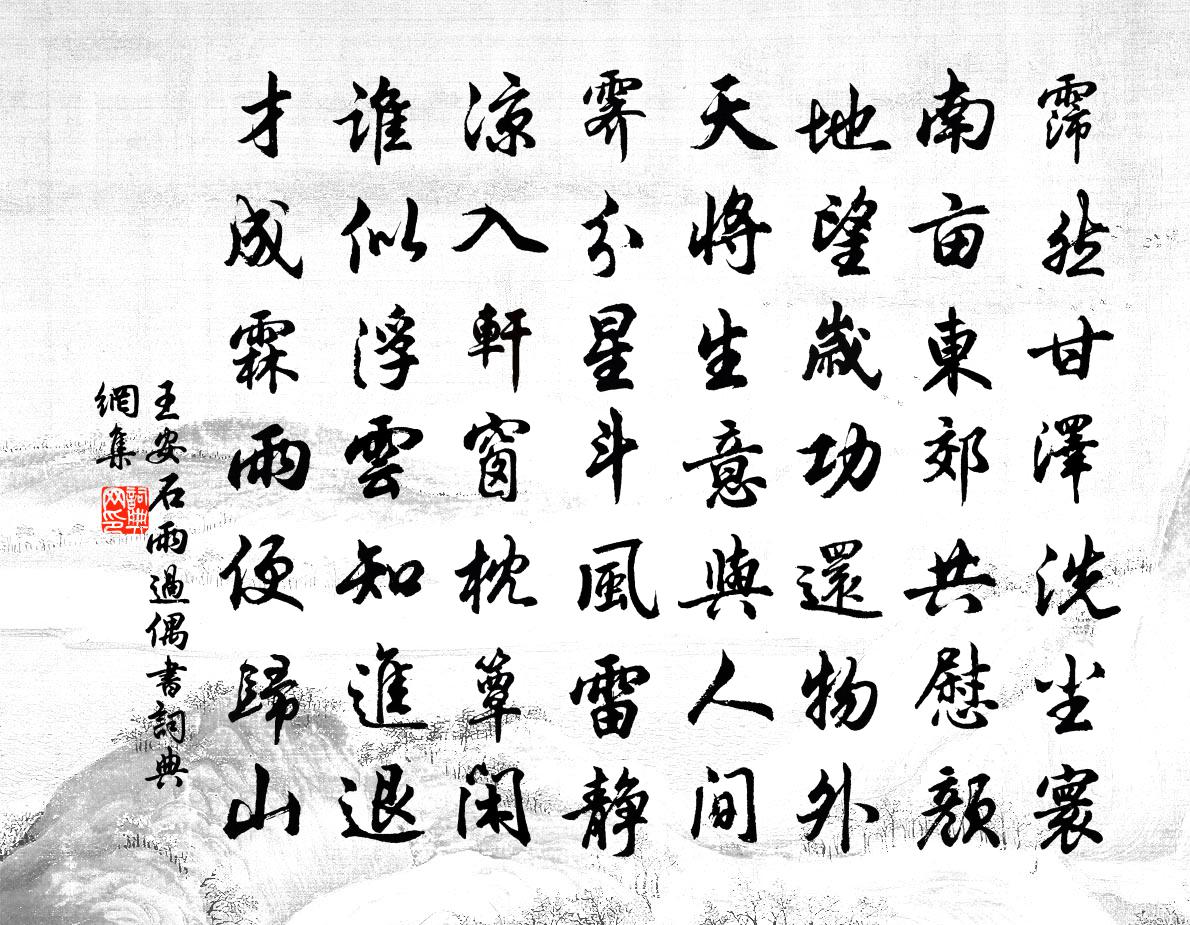 霈然甘澤洗尘寰
南亩東郊共慰顏
地望歲功還物外
天將生意與人間
霽分星斗風雷靜
涼入軒窗枕簟閑
誰似浮雲知進退
才成霖雨便歸山
王安石雨過偶書詞典
網集
詞典
网印